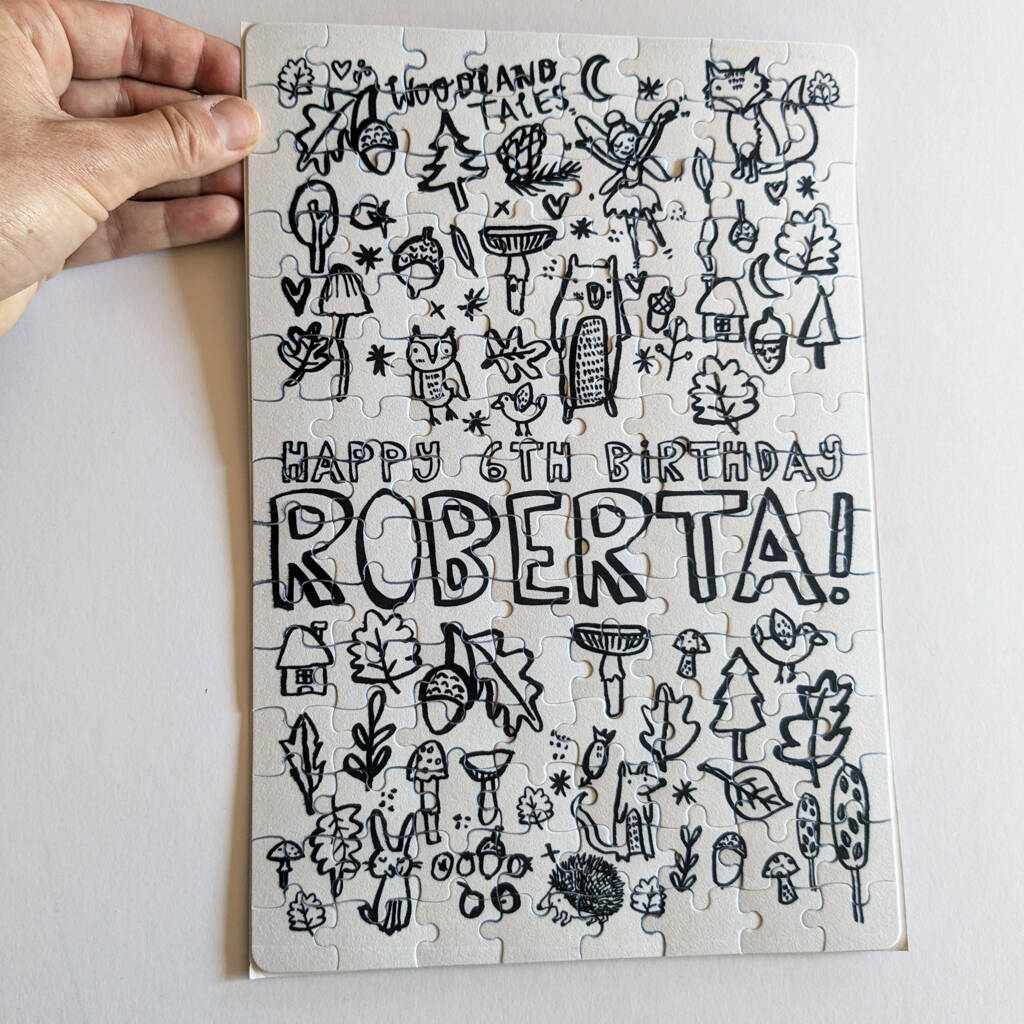 WOODLAND
TALES
HAPPY 6TH BiRTHDAY
ROBERTA!